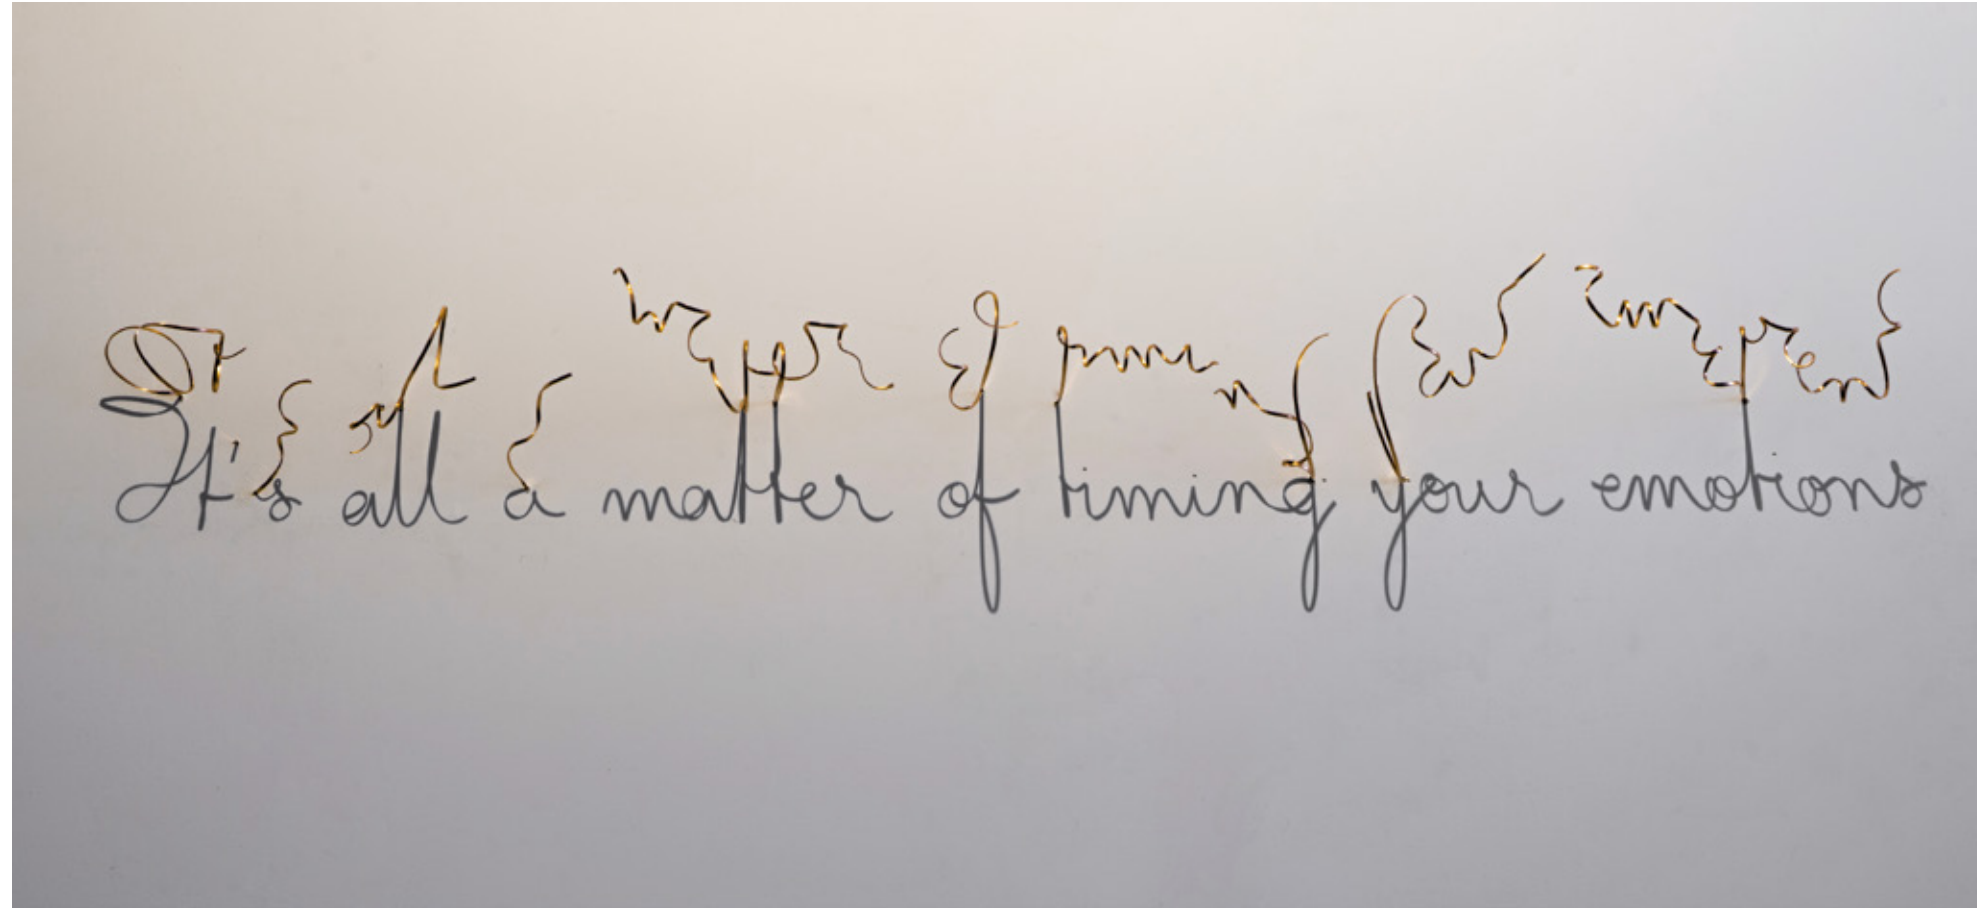 It's all a matter of timing your emotions